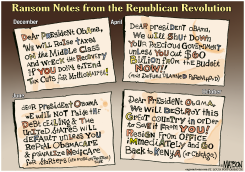 Ransom Notes from the Republican Revolution
December
Dear President Obama,
We will raise taxes
on the Middle Class
and wreck the Recovery
if you don't extend
Tax Cuts for Millionaires!
April
Dear President Obama,
We will shut down
your precious government
unless you cut $60
Billion from the Budget
NOW!!
(and defund Planned Parenthood)
Dear President Obama
we will not raise the
Debt Ceiling & The
United States will
default unless you
Repeal Obamacare
& privatize Medicare
for starters
Dear President Obama,
We will Destroy this
Great country in order
to save it from YOU!
Resign from office
immediately and go
Back to Kenya (or Chicago)